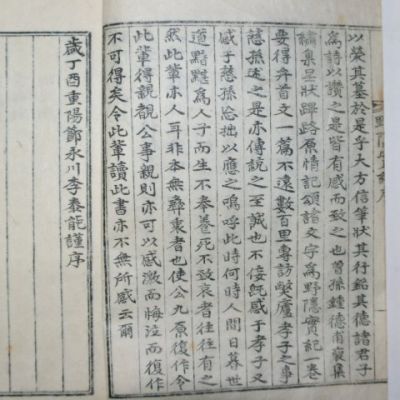 以榮其墓於是乎大方信筆狀其行銘其德諸君子
爲詩以讚之是皆有感而致之也曾孫鍾德甫裒集
集呈狀踝路原情記頌諸文字爲野隱實紀一卷
要得弁首文一篇不遠數百里專訪弊廬孝子之事
慈孫述之是亦傳説之至誠也不佞旣感于孝子又
感于慈孫忘拙以應之嗚呼此時何時人間日暮世
道黯黮爲人子而生不奉養死不致哀者往往有之
然此輩亦人耳非本無彛衷者也使公九原復作令
此輩得覩公事親則亦可以感激而悔泣而復作
不可得矣令此輩讀此書亦不無所感云爾
歲丁酉重陽節永川李泰能謹序